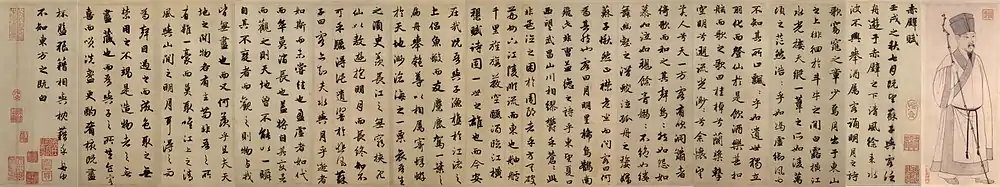 赤壁賦
壬戌之秋七月既望蘇子與客泛
舟遊于赤壁之下清風徐來水
波不興舉酒屬客誦明月之詩
歌窈窕之章少焉月出於東山
之上徘徊於斗牛之間白露橫江
水光接天縱一葦之所如凌萬
頃之茫然浩浩乎如憑虛御風而
不知其所止飄飄乎如遺世獨立
羽化而登仙於是飲酒樂甚扣
舷而歌之歌曰桂棹兮蘭槳擊
空明兮泝流光渺渺兮余懷望
美人兮天一方客有吹洞簫者
倚歌而和之其聲嗚嗚然如怨如
慕如泣如訴餘音嫋嫋不絕如縷
舞幽壑之潛蛟泣孤舟之嫠婦
蘇子愀然正襟危坐而問客曰何
為其然也客曰月明星稀烏鵲南
飛此非曹孟德之詩乎東望夏口
西望武昌山川相繆鬱乎蒼蒼此
非孟德之困於周郎者乎方其破
荊州下江陵順流而東也舳艫
千里旌旗蔽空釃酒臨江橫
槊賦詩固一世之雄也而今安
在哉況吾與子漁樵於江渚之
上侶魚蝦而友麋鹿駕一葉之
扁舟舉匏尊以相屬寄蜉蝣
於天地渺滄海之一粟哀吾生
之須臾羨長江之無窮挾飛
仙以遨遊抱明月而長終知不
可乎驟得託遺響於悲風蘇
子曰客亦知夫水與月乎逝者
如斯而未嘗往也盈虛者如代
而卒莫消長也蓋將自其變者
而觀之則天地曾不能以一瞬
自其不變者而觀之則物與我
皆無盡也而又何羨乎且夫天
地之間物各有主苟非吾之所
有雖一毫而莫取惟江上之清
風與山間之明月耳得之而
為聲目遇之而成色取之無
禁用之不竭是造物者之無
盡藏也而吾與子之所共食客
喜而笑洗盞更酌肴核既盡
杯盤狼籍相與枕藉乎舟中
不知東方之既白